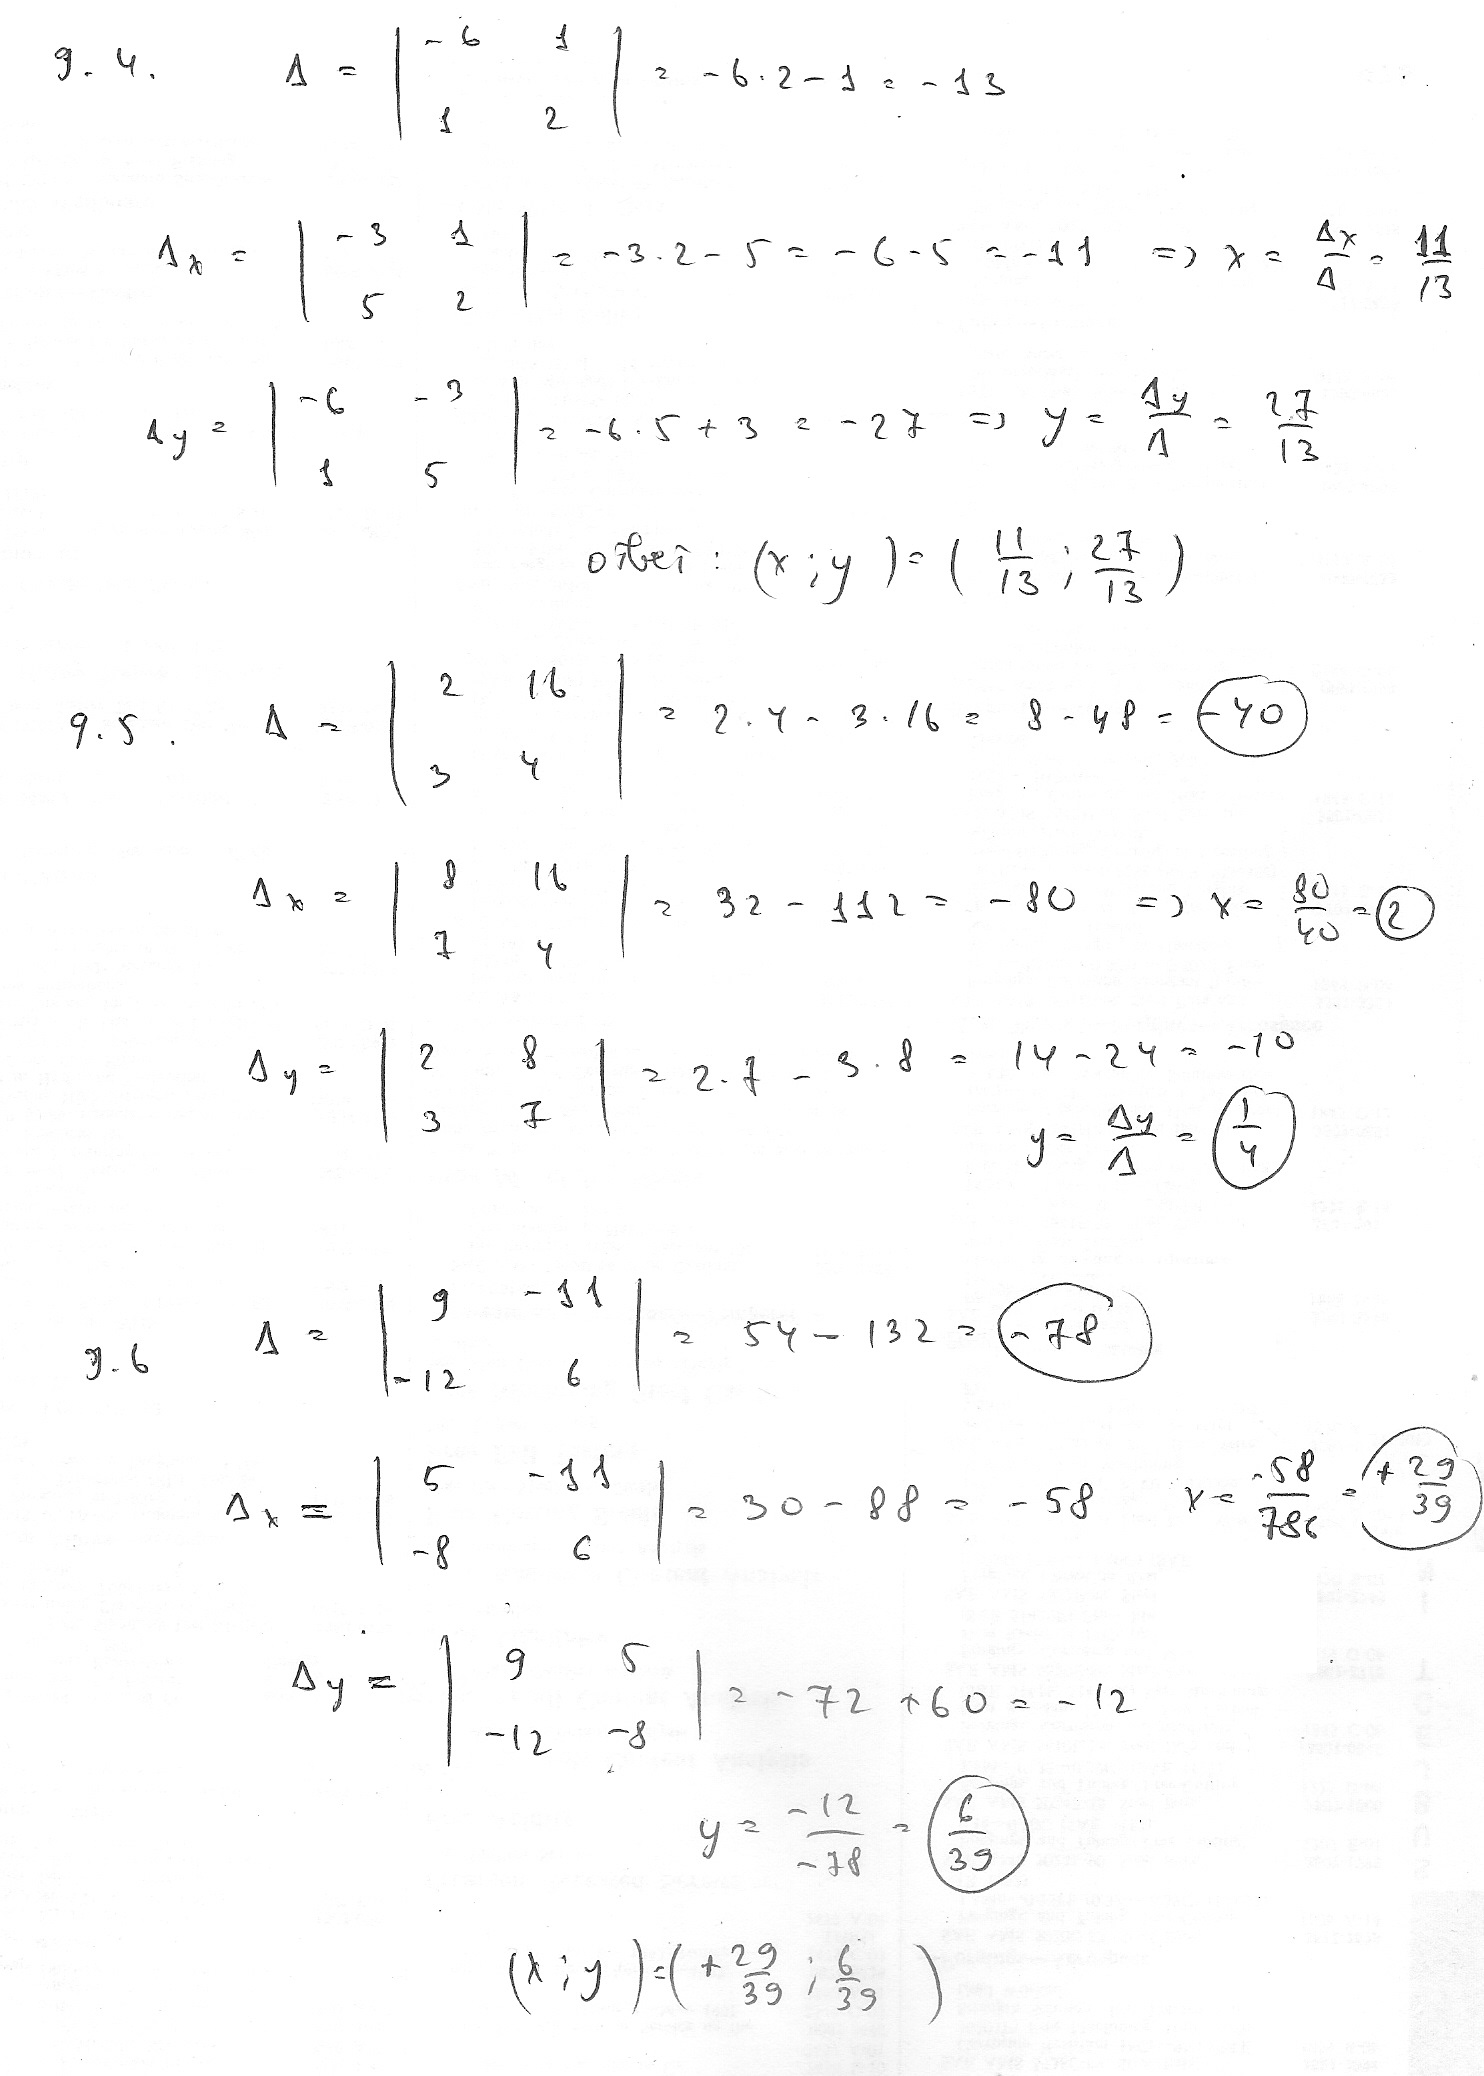 9.4. Δ = | -6 1 ; 1 2 | = -6·2-1 = -13
Δx = | -3 1 ; 5 2 | = -3·2-5 = -6-5 = -11 => x = Δx/Δ = 11/13
Δy = | -6 -3 ; 1 5 | = -6·5+3 = -27 => y = Δy/Δ = 27/13
ответ: (x;y)=(11/13; 27/13)
9.5. Δ = | 2 16 ; 3 4 | = 2·4-3·16 = 8-48 = -40
Δx = | 8 16 ; 7 4 | = 32-112 = -80 => x = 80/40 = 2
Δy = | 2 8 ; 3 7 | = 2·7-3·8 = 14-24 = -10
y = Δy/Δ = 1/4
9.6 Δ = | 9 -11 ; -12 6 | = 54-132 = -78
Δx = | 5 -11 ; -8 6 | = 30-88 = -58 x = -58/786 = +29/39
Δy = | 9 5 ; -12 -8 | = -72+60 = -12
y = -12/-78 = 6/39
(x;y)=(+29/39; 6/39)